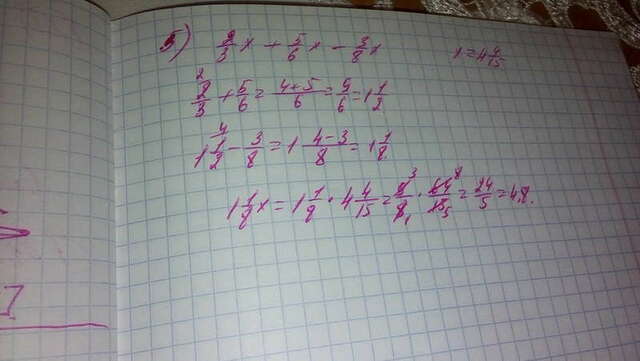 в) 2/3 x + 5/6 x − 3/8 x    x = 4 4/15
2/3 ² + 5/6 = 4+5/6 = 9/6 = 1 1/2
1 1/2 ⁴ − 3/8 = 1 4−3/8 = 1 1/8
1 1/8 x = 1 1/8 · 4 4/15 = 9³/8₁ · 64⁸/15₅ = 24/5 = 4,8.